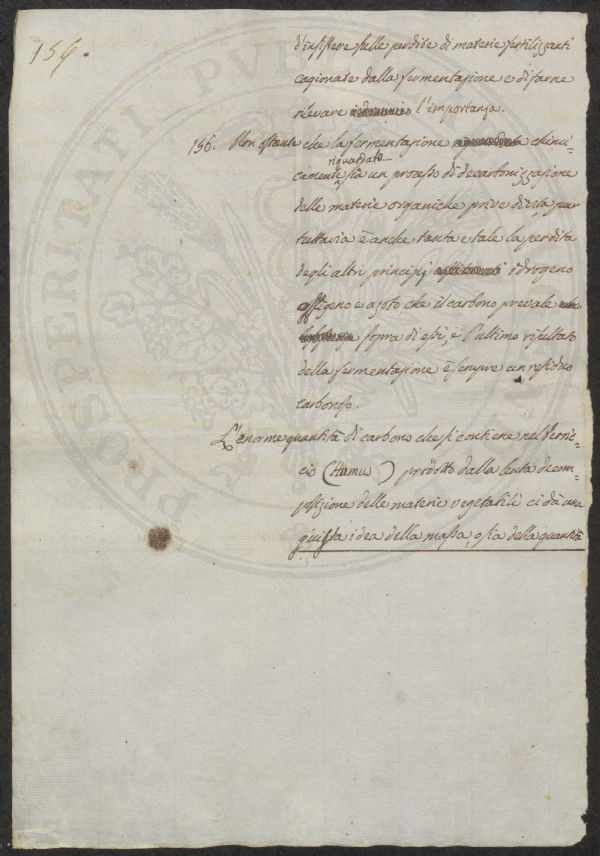 156.
d'insistere sulle perdite di materie fertilizzanti
cagionate dalla fermentazione e di farne
rilevare l'importanza.
156. Non ostante che la fermentazione chimi-
riguardata
camente sia un processo di decarbonizzazione
delle materie organiche prive di vita pur
tuttavia è anche tanta e tale la perdita
degli altri principj idrogeno
ossigeno e azoto che il carbono prevale
sopra di essi, e l'ultimo risultato
della fermentazione è sempre un residuo
carbonoso.
L'enorme quantità di carbono che si contiene nel Terric-
cio (Humus) prodotto dalla lenta decom-
posizione delle materie vegetabili ci dà una
giusta idea della massa, o sia della quantità
PROSPERITATI PUBL